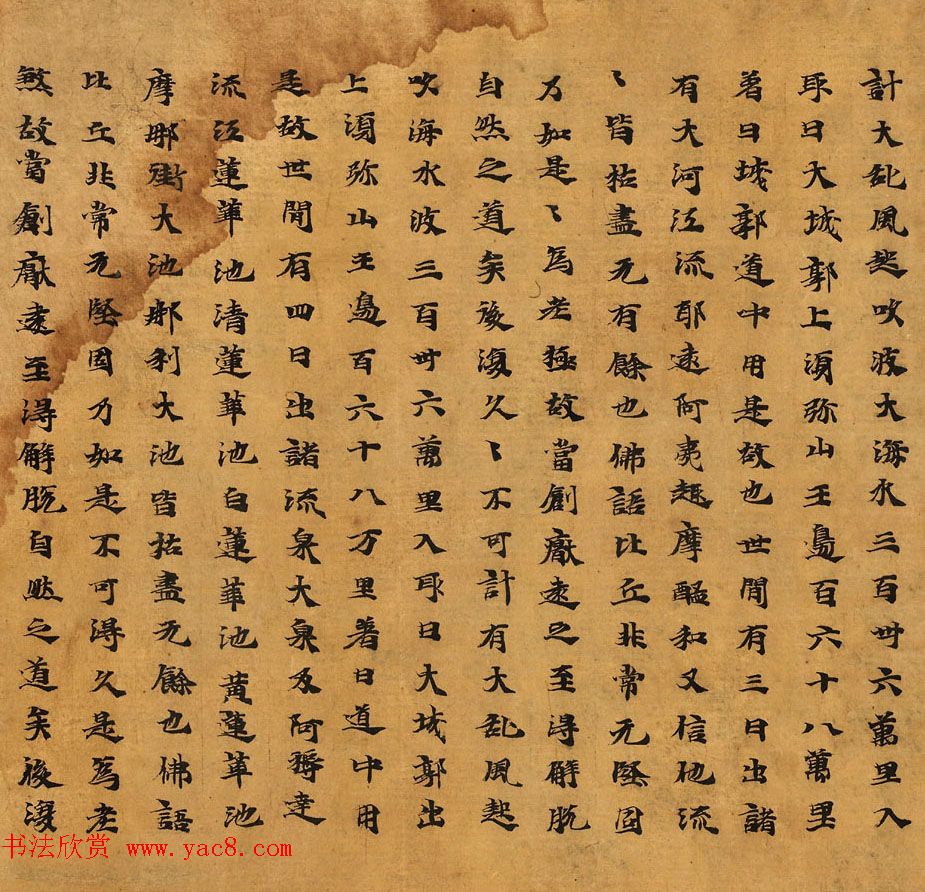 計大亂風起吹波大海水三百卅六萬里入
取日大城郭上須弥山王邊百六十八萬里
著日城郭道中用是故也世間有三日出諸
有大河江流耶遠阿夷越摩醯和叉信他流
〻皆枯盡无有餘也佛語比丘非常无堅固
乃如是〻為老極故當創厭遠之至得解脫
自然之道矣後復久〻不可計有大亂風起
吹海水波三百卅六萬里入取日大城郭出
上須弥山王邊百六十八万里著日道中用
是故世間有四日出諸流泉大泉及阿耨達
流江蓮華池清蓮華池白蓮華池黃蓮華池
摩那街大池那利大池皆枯盡无餘也佛語
比丘非常无堅固乃如是不可得久是為老
煞故當創厭遠至得解脫自然之道矣後復
书法欣赏 www.yac8.com